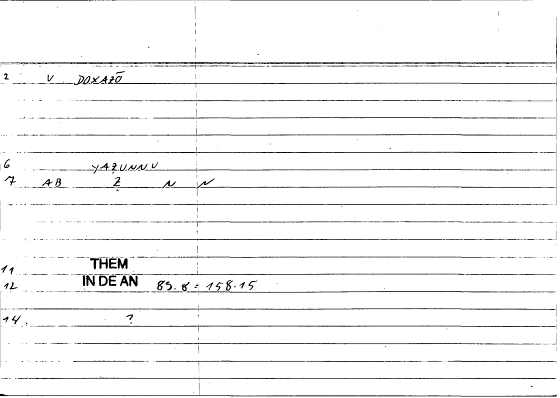 2 V DOXAZŌ
6 YAẒUNNU
7 AB Ẓ N N
11 THEM
12 IN DE AN 89.8 = 158.15
14. ?